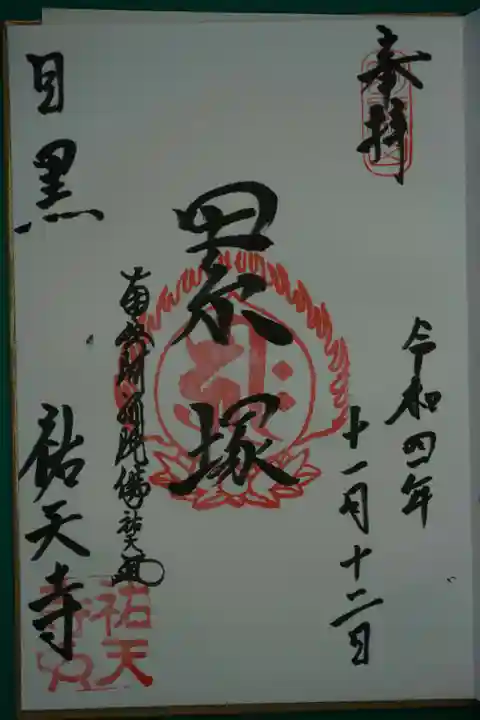 奉拝
令和四年
十一月十二日
累塚
南無阿弥陀佛 祐天
目黒 祐天寺
祐天